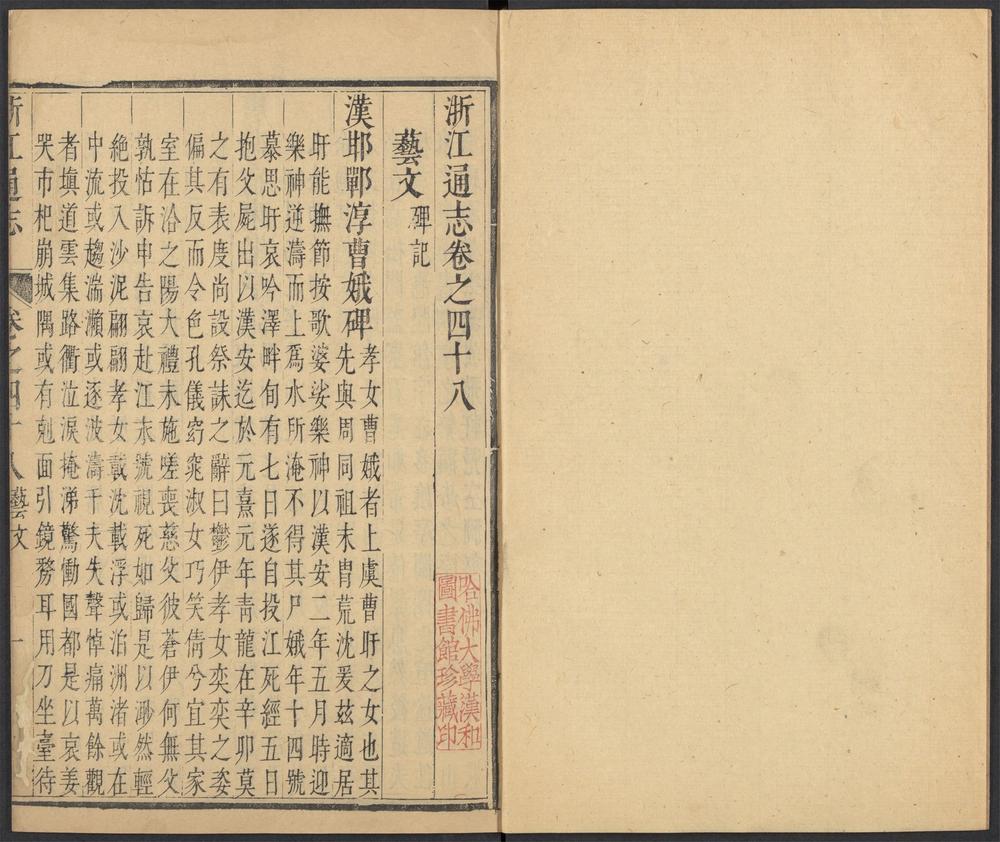 浙江通志卷之四十八
哈佛大學漢和
圖書館珍藏印
藝文 碑記
漢邯鄲淳曹娥碑
孝女曹娥者上虞曹盱之女也其
先與周同祖末胄荒沈爰玆適居
盱能撫節按歌婆娑樂神以漢安二年五月時迎
樂神逆濤而上爲水所淹不得其尸娥年十四號
慕思盱哀吟澤畔旬有七日遂自投江死經五日
抱父屍出以漢安迄於元熹元年靑龍在辛卯莫
之有表度尚設祭誄之辭曰鬱伊孝女奕奕之姿
偏其反而令色孔儀窈窕淑女巧笑倩兮宜其家
室在洽之陽大禮未施嗟喪慈父彼蒼伊何無父
孰怙訴申告哀赴江永號視死如歸是以渺然輕
絶投入沙泥翩翩孝女載沈載浮或泊洲渚或在
中流或趨湍瀨或逐波濤千夫失聲悼痛萬餘觀
者塡道雲集路衢泣淚掩涕驚慟國都是以哀姜
哭市杞崩城隅或有剋面引鏡務耳用刀坐臺待
浙江通志 卷之四十八藝文 一